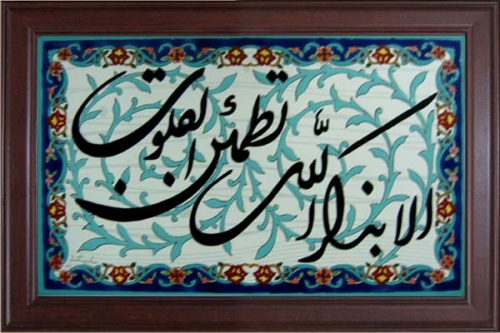 الا بذکر الله
تطمئن القلوب